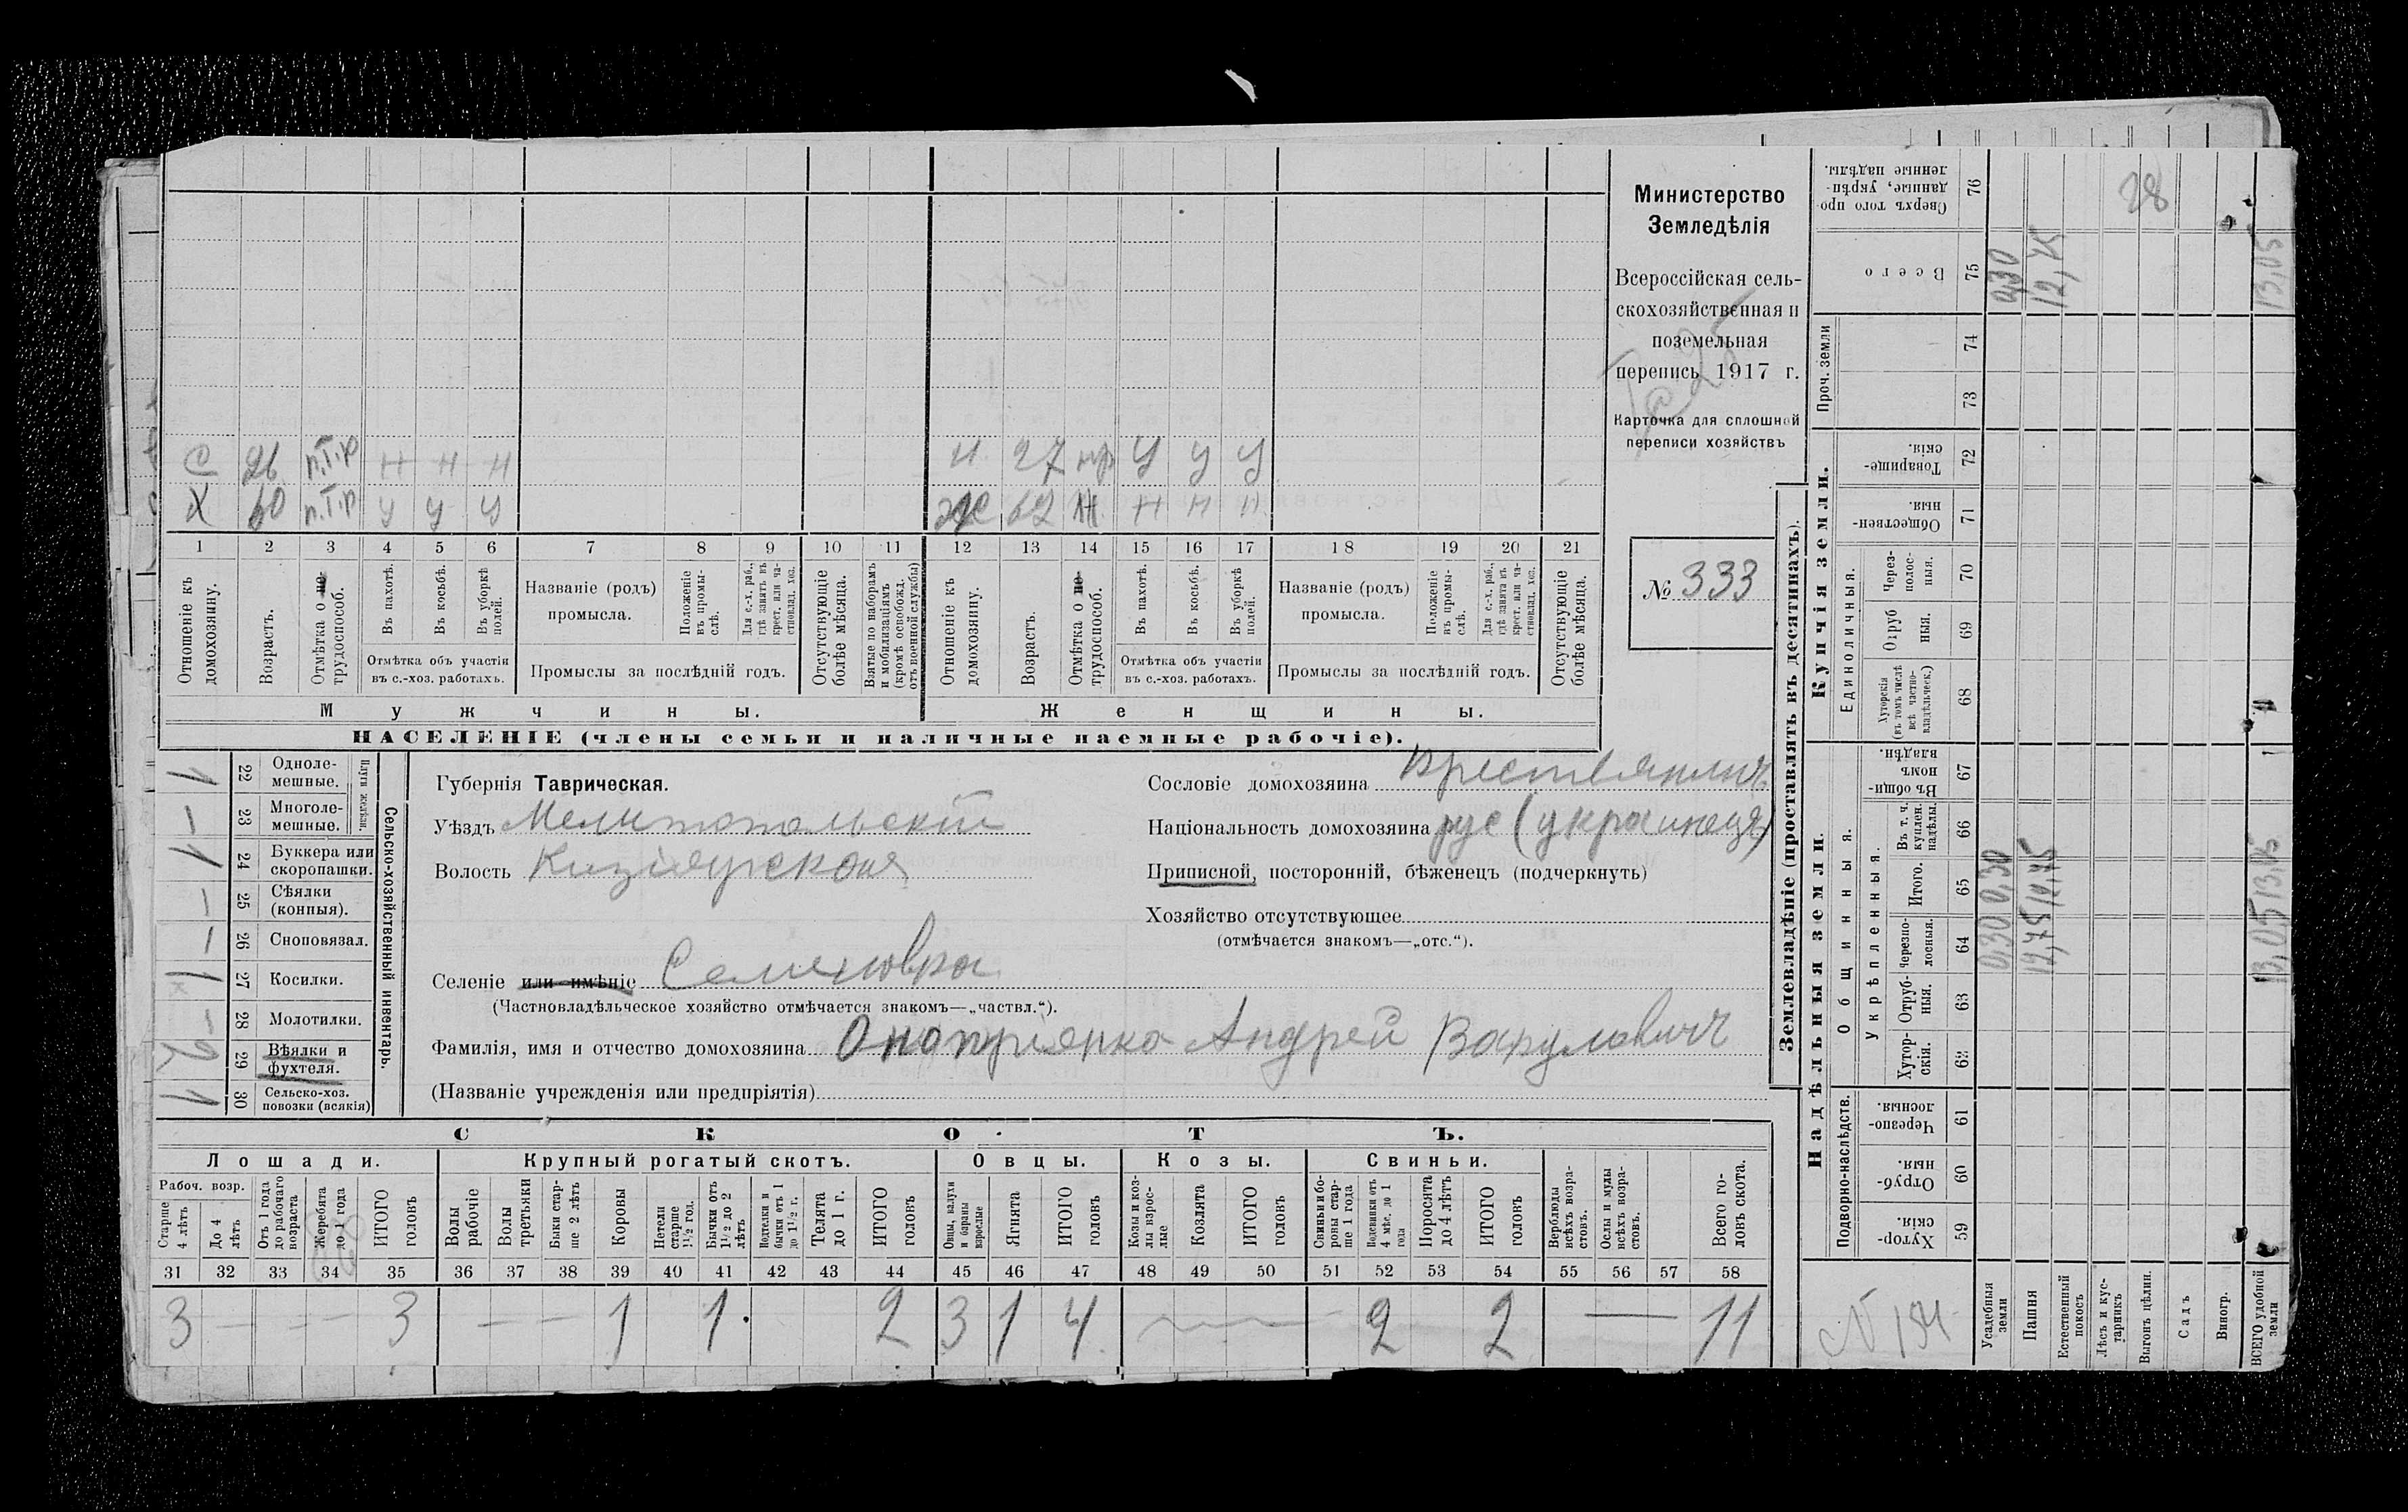 С 26 п.т.р Н Н Н Н 27 нр У У У
Х 60 п.т.р У У У Ж 62 Н Н Н Н
1 2 3 4 5 6 7 8 9 10 11 12 13 14 15 16 17 18 19 20 21
Отношеніе къ домохозяину.
Возрастъ.
Отмѣтка о не-трудоспособ.
Въ пахотѣ.
Въ косьбѣ.
Въ уборкѣ полей.
Отмѣтка объ участіи въ с.-хоз. работахъ.
Названіе (родъ) промысла.
Положеніе въ промы-слѣ.
Для с.-х. раб., гдѣ занятъ въ крест. или ча-стновлад. хоз.
Промыслы за послѣдній годъ.
Отсутствующіе болѣе мѣсяца.
Взятые по наборамъ и мобилизаціямъ (кромѣ освобожд. отъ военной службы)
Отношеніе къ домохозяину.
Возрастъ.
Отмѣтка о не-трудоспособ.
Въ пахотѣ.
Въ косьбѣ.
Въ уборкѣ полей.
Отмѣтка объ участіи въ с.-хоз. работахъ.
Названіе (родъ) промысла.
Положеніе въ промы-слѣ.
Для с.-х. раб., гдѣ занята въ крест. или ча-стновлад. хоз.
Промыслы за послѣдній годъ.
Отсутствующіе болѣе мѣсяца.
Мужчины. Женщины.
НАСЕЛЕНІЕ (члены семьи и наличные наемные рабочіе).
Министерство
Земледѣлія
Всероссійская сель-
скохозяйственная и
поземельная
перепись 1917 г.
Карточка для сплошной
переписи хозяйствъ
№ 333
1 22 Одноле-мешные.
– 23 Многоле-мешные.
Плуги желѣзн.
1 24 Буккера или скоропашки.
– 25 Сѣялки (конныя).
– 26 Сноповязал.
1 к 27 Косилки.
– 28 Молотилки.
29 Вѣялки и фухтеля.
1 30 Сельско-хоз. повозки (всякія)
Сельско-хозяйственный инвентарь.
Губернія Таврическая.
Уѣздъ Мелитопольскій
Волость Кизіярская
Селеніе или имѣніе Семеновка
(Частновладѣльческое хозяйство отмѣчается знакомъ—„частвл.“).
Фамилія, имя и отчество домохозяина Оноприянко Андрей Вакулович
(Названіе учрежденія или предпріятія)
Сословіе домохозяина Крестьянинъ
Національность домохозяина рус (украинецъ)
Приписной, посторонній, бѣженецъ (подчеркнуть)
Хозяйство отсутствующее
(отмѣчается знакомъ—„отс.“).
СКОТЪ.
Лошади. Крупный рогатый скотъ. Овцы. Козы. Свиньи.
Рабоч. возр.
Старше 4 лѣтъ
До 4 лѣтъ
Отъ 1 года до рабочаго возраста
Жеребята до 1 года
ИТОГО головъ
Волы рабочіе
Волы третьяки
Быки стар-ше 2 лѣтъ
Коровы
Нетели старше 1½ год.
Бычки отъ 1½ до 2 лѣтъ
Подтелки и бычки отъ 1 до 1½ г.
Телята до 1 г.
ИТОГО головъ
Овцы, валухи и бараны взрослые
Ягнята
ИТОГО головъ
Козы и коз-лы взрос-лые
Козлята
ИТОГО головъ
Свиньи и бо-ровы стар-ше 1 года
Подсвинки отъ 4 мѣс. до 1 года
Поросята до 4 лѣтъ
ИТОГО головъ
Верблюды всѣхъ возра-стовъ.
Ослы и мулы всѣхъ возра-стовъ.
Всего го-ловъ скота.
31 32 33 34 35 36 37 38 39 40 41 42 43 44 45 46 47 48 49 50 51 52 53 54 55 56 57 58
3 – – – 3 – – 1 1 2 3 1 4 – 2 2 — 11
Землевладѣніе (проставлять въ десятинахъ).
Надѣльныя земли.
Купчія земли.
Подворно-наслѣдств.
Общинныя.
Укрѣпленныя.
Единоличныя.
Проч. земли
Хутор-скія. 59
Отруб-ныя. 60
Черезпо-лосныя. 61
Хутор-скія. 62
Отруб-ныя. 63
Черезпо-лосныя. 64
Итого. 65
Въ т. ч. куплен. надѣлы. 66
Въ общин-номъ владѣн. 67
Хуторскія (въ томъ числѣ всѣ частно-владѣльческ.) 68
Отрубныя. 69
Через-полос-ныя. 70
Обществен-ныя 71
Товарище-скія. 72
73
74
Всего 75
Сверхъ того про-данные, укрѣп-ленные надѣлы. 76
Усадебныя земли 0,30 0,30 0,30
Пашня 12,75 12,75 12,75
Естественный покосъ
Лѣсъ и кус-тарникъ
Выгонъ цѣлин. 28
Садъ
Виногр.
ВСЕГО удобной земли 13,05 13,05 13,05
N 194